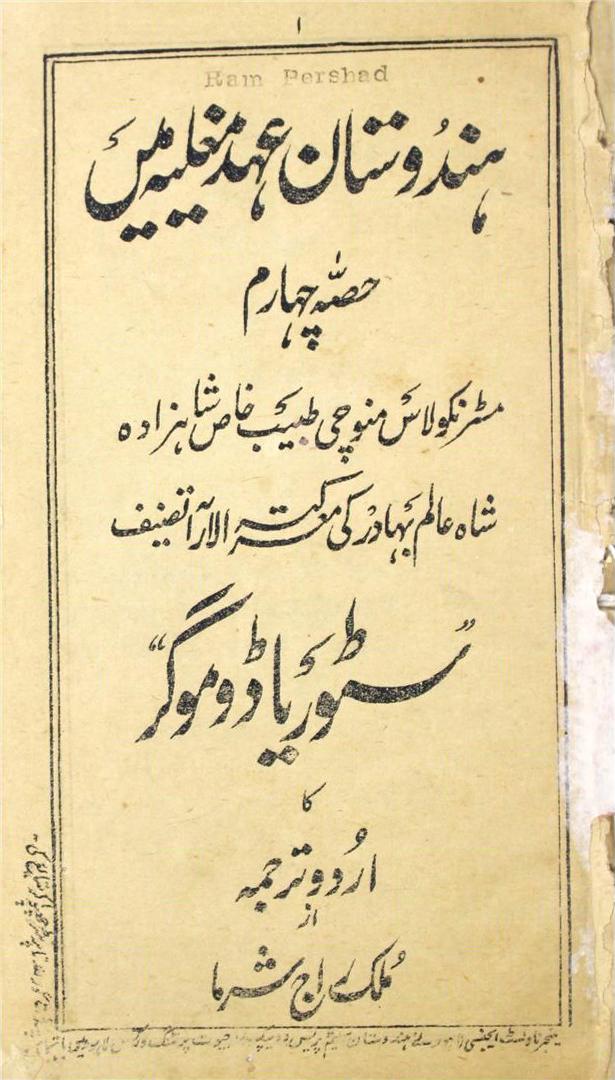 ۱
Ram Pershad
ہندوستان عہد مغلیہ میں
حصّہ چہارم
مسٹر نکولاس منوچی طبیب خاص شاہزادہ
شاہ عالم بہادر کی معرکتہ الآرا تصنیف
"سٹوریا ڈو موگر"
کا
اردو ترجمہ
از
ملک راج شرما